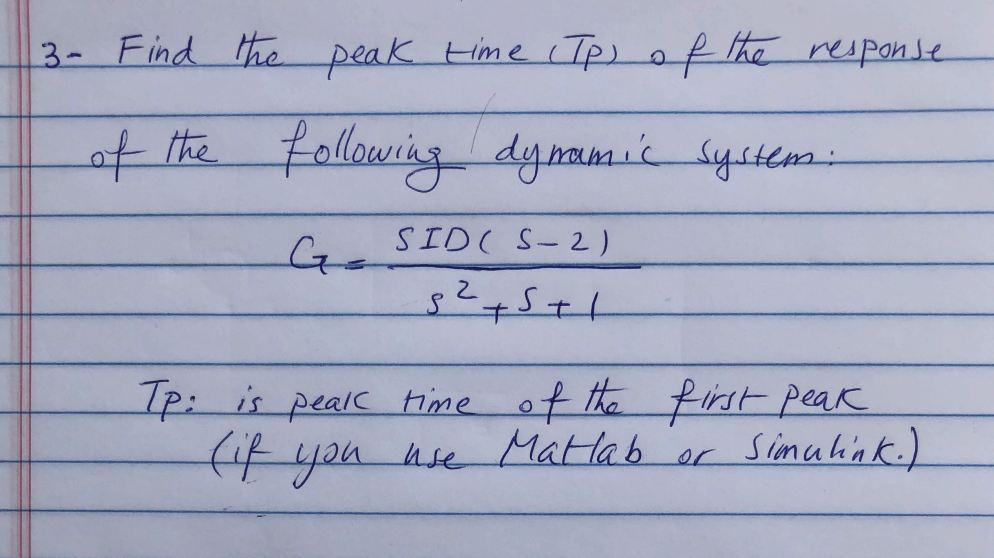 3- Find the peak time (Tp) of the response
of the following dynamic system:
G = SID( S-2)
s² + S + 1
Tp: is peak time of the first peak
(if you use Matlab or Simulink.)